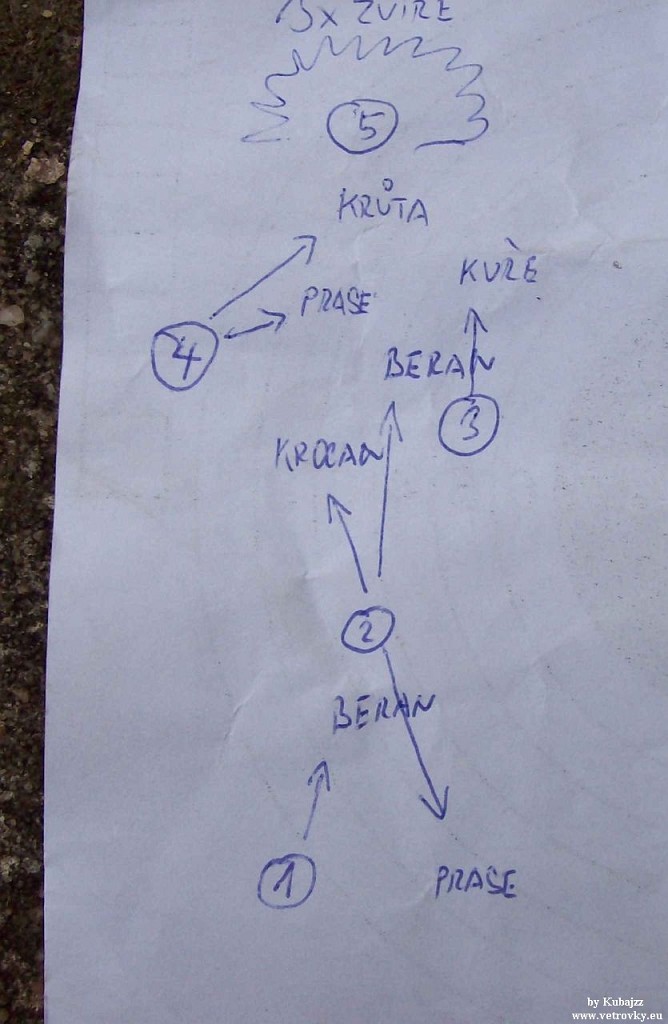 13x ZVÍŘE
5
KRŮTA
KUŘE
PRASE
4
BERAN
3
KROCAN
2
BERAN
1
PRASE
by Kubajzz
www.vetrovky.eu